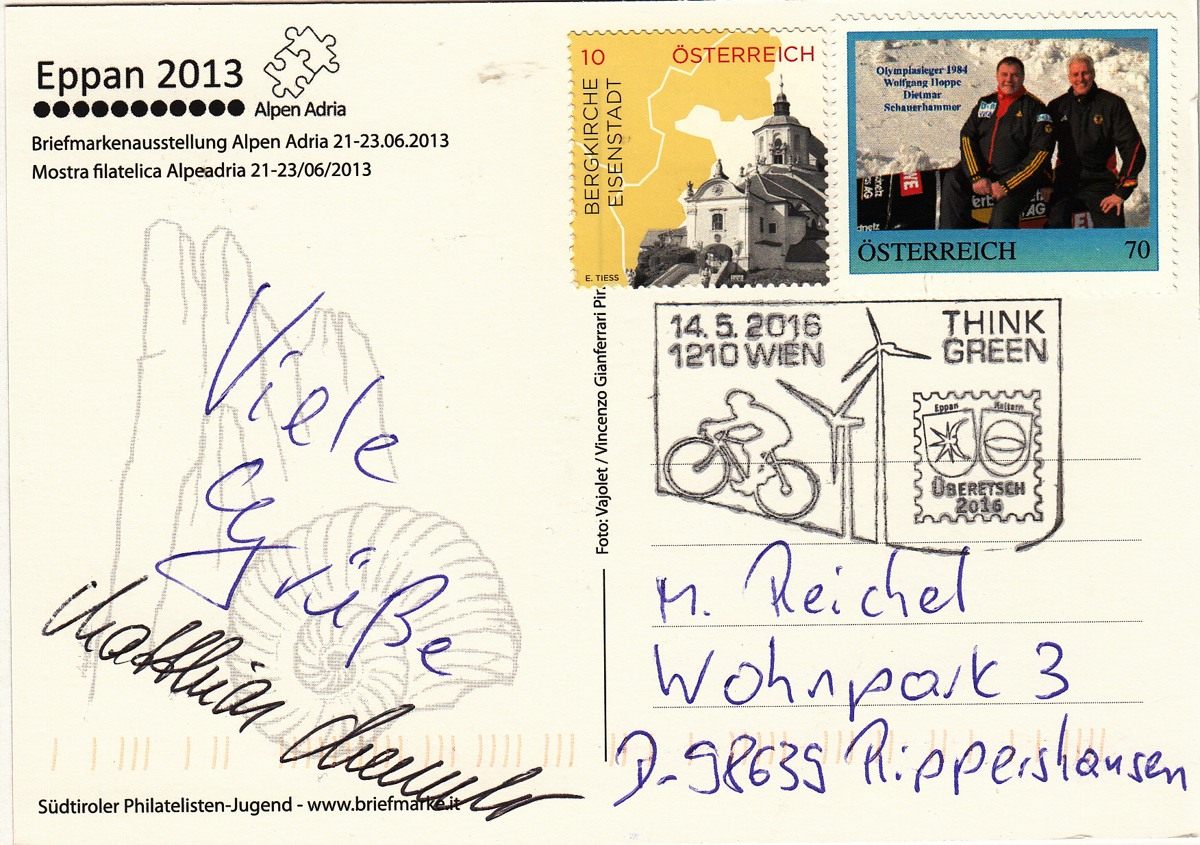 Eppan 2013
Alpen Adria
Briefmarkenausstellung Alpen Adria 21-23.06.2013
Mostra filatelica Alpeadria 21-23/06/2013
10 ÖSTERREICH
BERGKIRCHE
EISENSTADT
E. TIESS
Olympiasieger 1984
Wolfgang Hoppe
Dietmar
Schauerhammer
ÖSTERREICH 70
14.5.2016
1210 WIEN
THINK
GREEN
Eppan Kaltern
ÜBERETSCH
2016
Foto: Vajolet / Vincenzo Gianferrari Pir
Viele
Grüße
Matthias
M. Reichel
Wohnpark 3
D-98639 Rippershausen
Südtiroler Philatelisten-Jugend - www.briefmarke.it